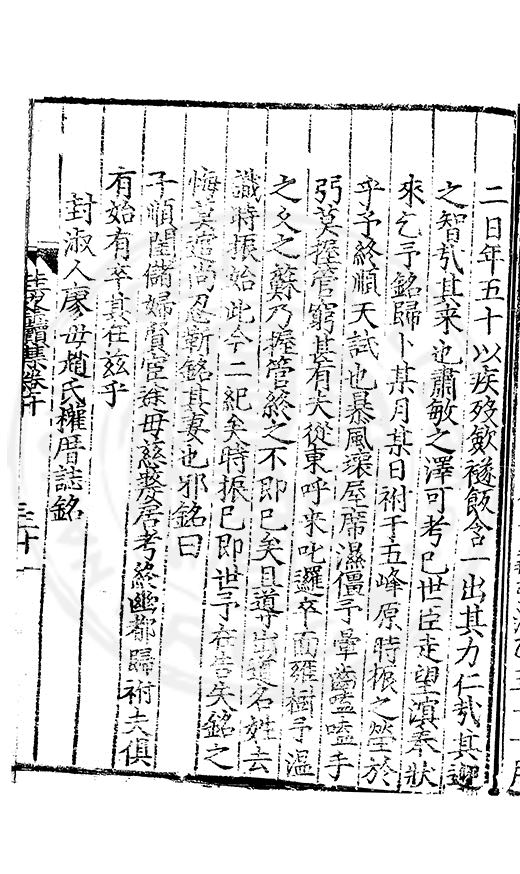 二日年五十以疾歿歛襚飯含一出其力仁哉其迎
之智哉其来也肅敏之澤可考巳世臣走望湏奉狀
來乞予銘歸卜某月某日祔于五峰原時振之塋於
乎予終順天試也暴風壞屋席濕僵予暈齒嗑嗑手
弱莫握管窘甚有夫從東呼来叱邏卒面雍樹予温
之久之蘇乃握管終之不即巳矣且導出道名姓去
識時振始此今二紀矣時振巳即世予在告失銘之
悔莫遑尚忍靳銘其妻也邪銘曰
子順閨儲婦賢宦途毋慈嫠居考終幽都歸祔夫俱
有始有卒其在兹乎
封淑人廖毋趙氏權厝誌銘
集卷十
三十一